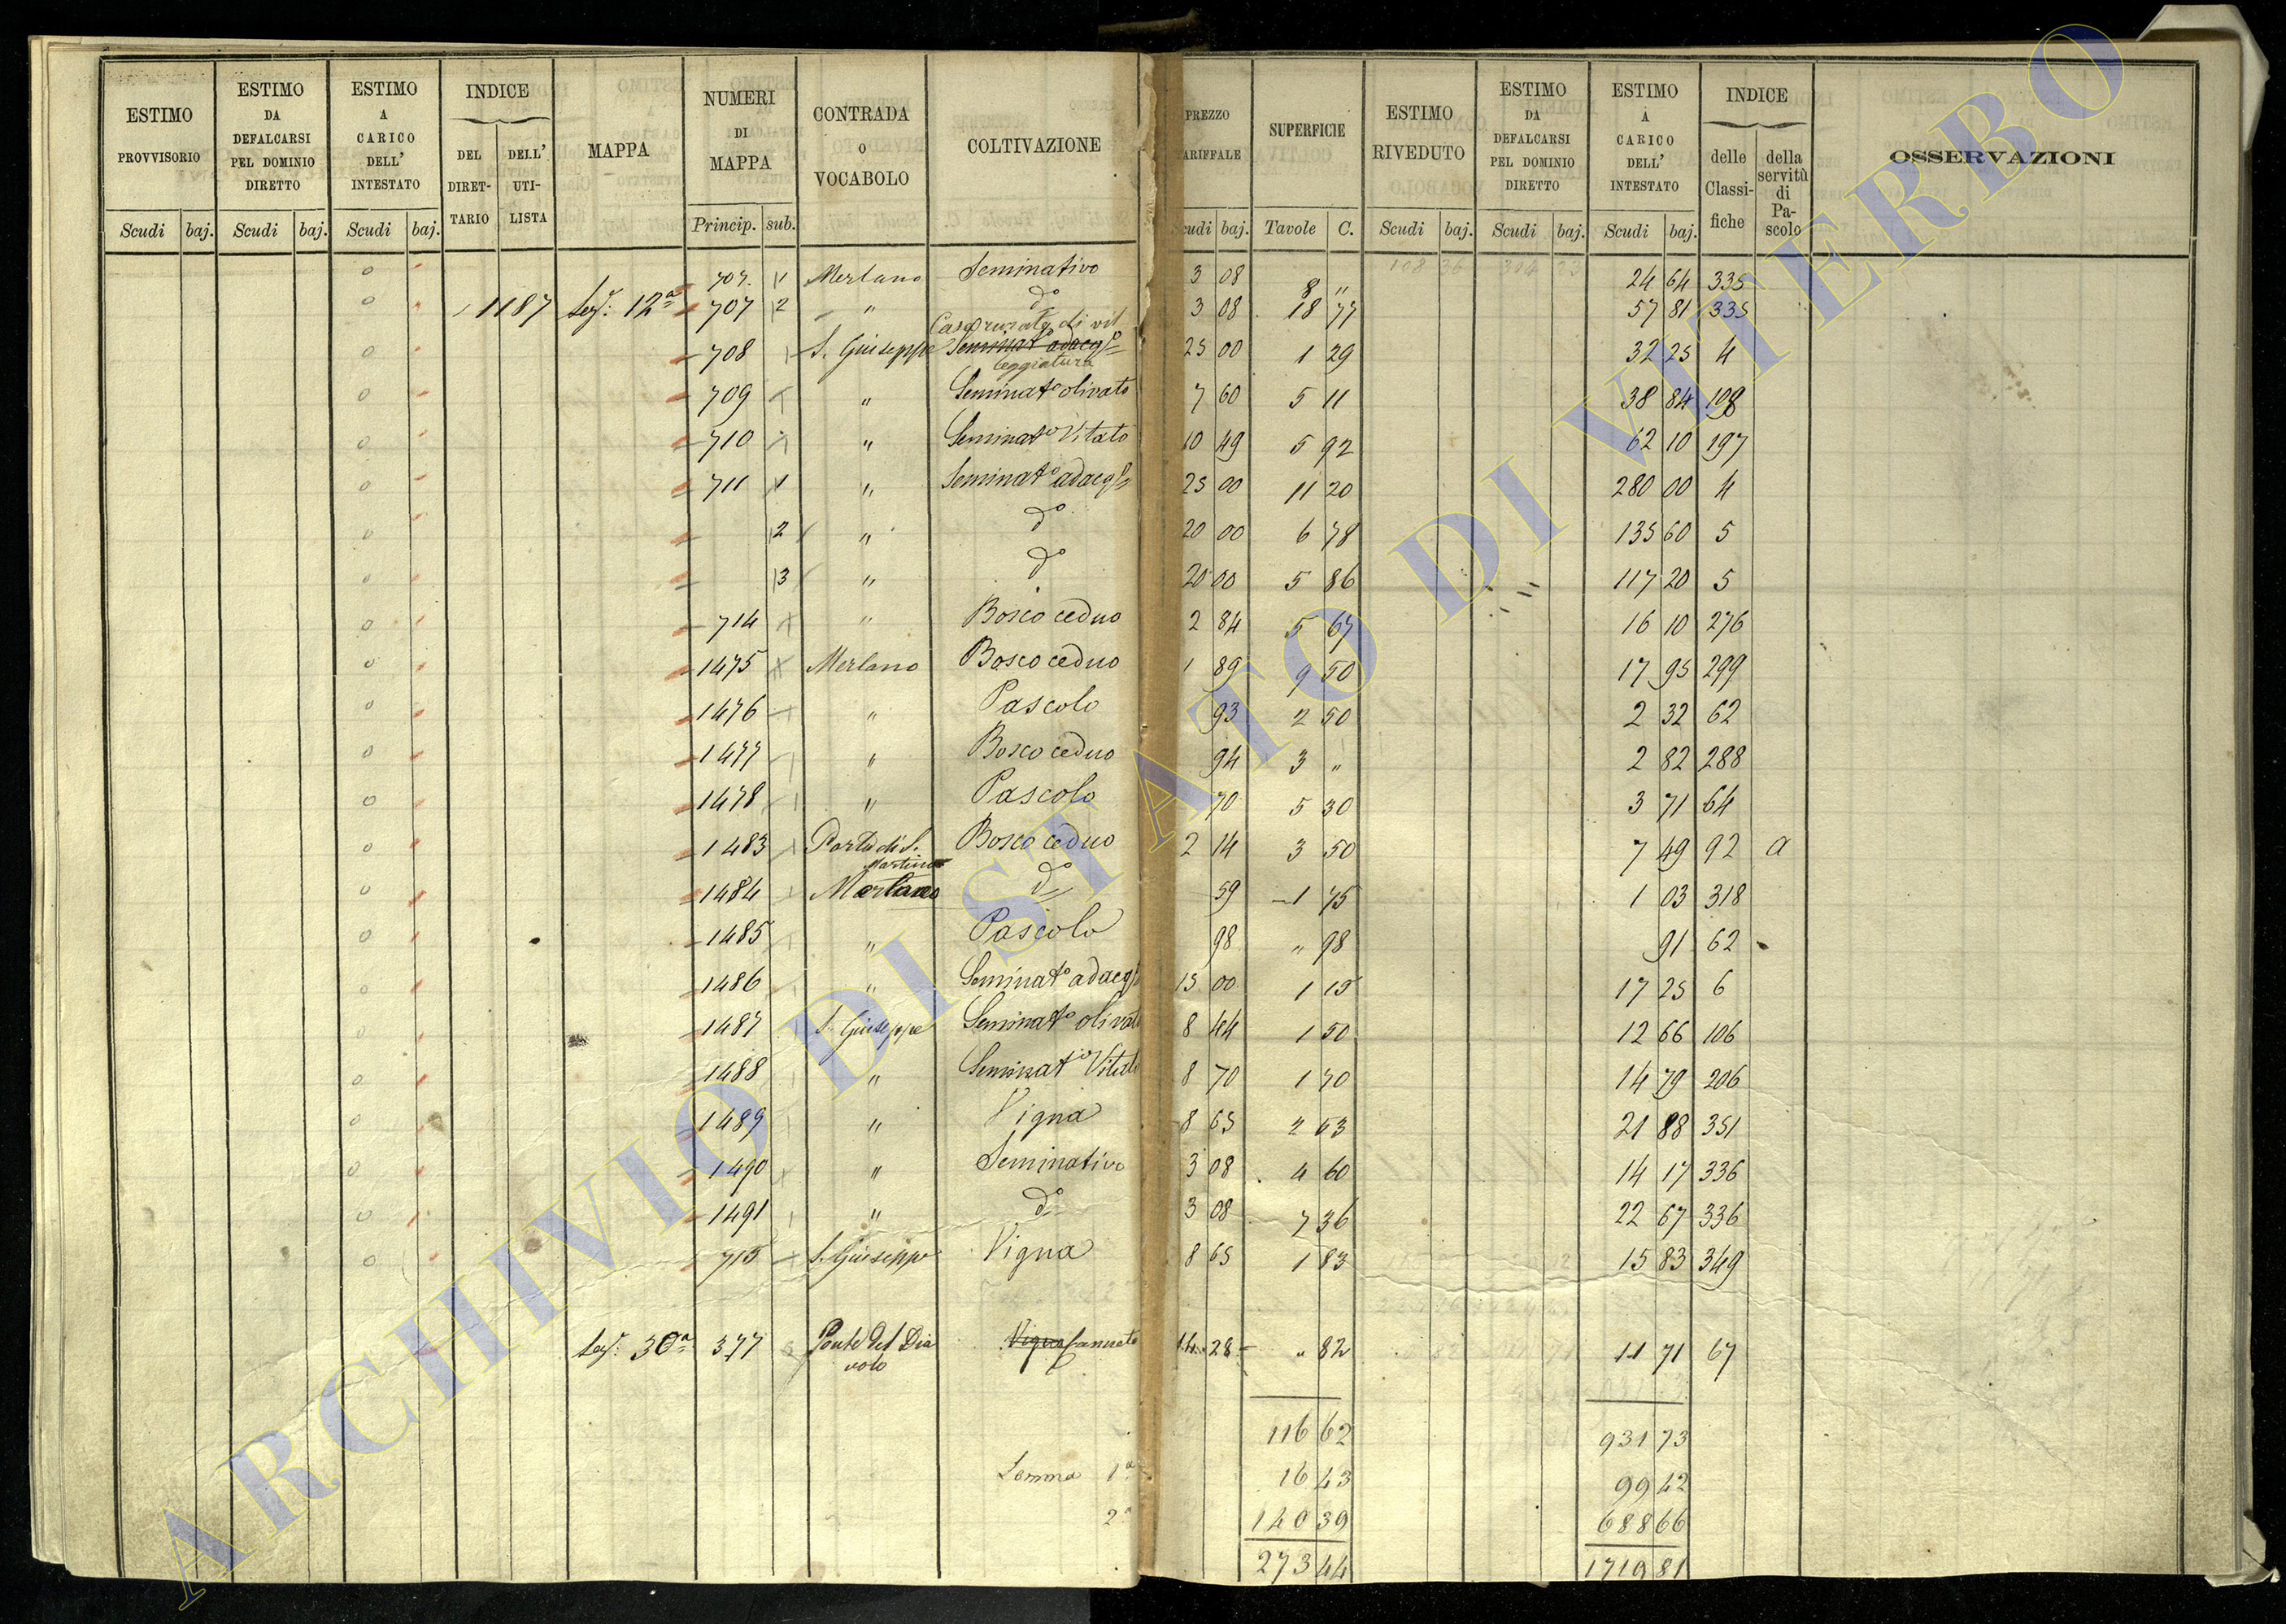 ESTIMO PROVVISORIO
ESTIMO DA DEFALCARSI PEL DOMINIO DIRETTO
ESTIMO A CARICO DELL' INTESTATO
INDICE
DEL DIRET-TARIO
DELL' UTI-LISTA
MAPPA
NUMERI DI MAPPA
CONTRADA O VOCABOLO
COLTIVAZIONE
PREZZO
ARIFFALE
SUPERFICIE
ESTIMO RIVEDUTO
ESTIMO DA DEFALCARSI PEL DOMINIO DIRETTO
ESTIMO A CARICO DELL' INTESTATO
INDICE
delle Classi-fiche
della servitù di Pa-scolo
OSSERVAZIONI
Scudi baj. Scudi baj. Scudi baj. Princip. sub. cudi baj. Tavole C. Scudi baj. Scudi baj. Scudi baj.
0 707. 1 Merlano Seminativo 3 08 8 " 24 64 335
0 1187 Sez. 12ª 707 2 " do 3 08 18 77 57 81 335
Casa rurale di vil
0 708 S. Giuseppe Seminat adacqo 25 00 1 29 32 25 4
leggiatura
0 709 " Seminato olivato 7 60 5 11 38 84 198
0 710 " Seminato Vitato 10 49 5 92 62 10 197
0 711 1 " Seminato adacqo 25 00 11 20 280 00 4
0 2 " do 20 00 6 78 135 60 5
0 3 " do 20 00 5 86 117 20 5
0 714 " Bosco ceduo 2 84 5 67 16 10 276
0 1475 Merlano Bosco ceduo 1 89 9 50 17 95 299
0 1476 " Pascolo 93 2 50 2 32 62
0 1477 " Bosco ceduo 94 3 " 2 82 288
0 1478 " Pascolo 70 5 30 3 71 64
0 1483 Porto di S. Martino Bosco ceduo 2 14 3 50 7 49 92 a
0 1484 Merlano do 59 1 75 1 03 318
0 1485 " Pascolo 98 " 98 91 62
0 1486 " Seminato adacq 15 00 1 15 17 25 6
0 1487 S. Giuseppe Seminato olivato 8 44 1 50 12 66 106
0 1488 " Seminato Vitato 8 70 1 70 14 79 206
0 1489 " Vigna 8 65 2 53 21 88 351
0 1490 " Seminativo 3 08 4 60 14 17 336
0 1491 " do 3 08 7 36 22 67 336
0 715 S. Giuseppe Vigna 8 65 1 83 15 83 349
Sez. 30ª 377 Ponte del Dia Vigna Canneto 14 28 " 82 11 71 67
volo
116 62 931 73
Somma 1ª 16 43 99 42
2ª 140 39 688 66
273 44 1719 81
ARCHIVIO DI STATO DI VITERBO